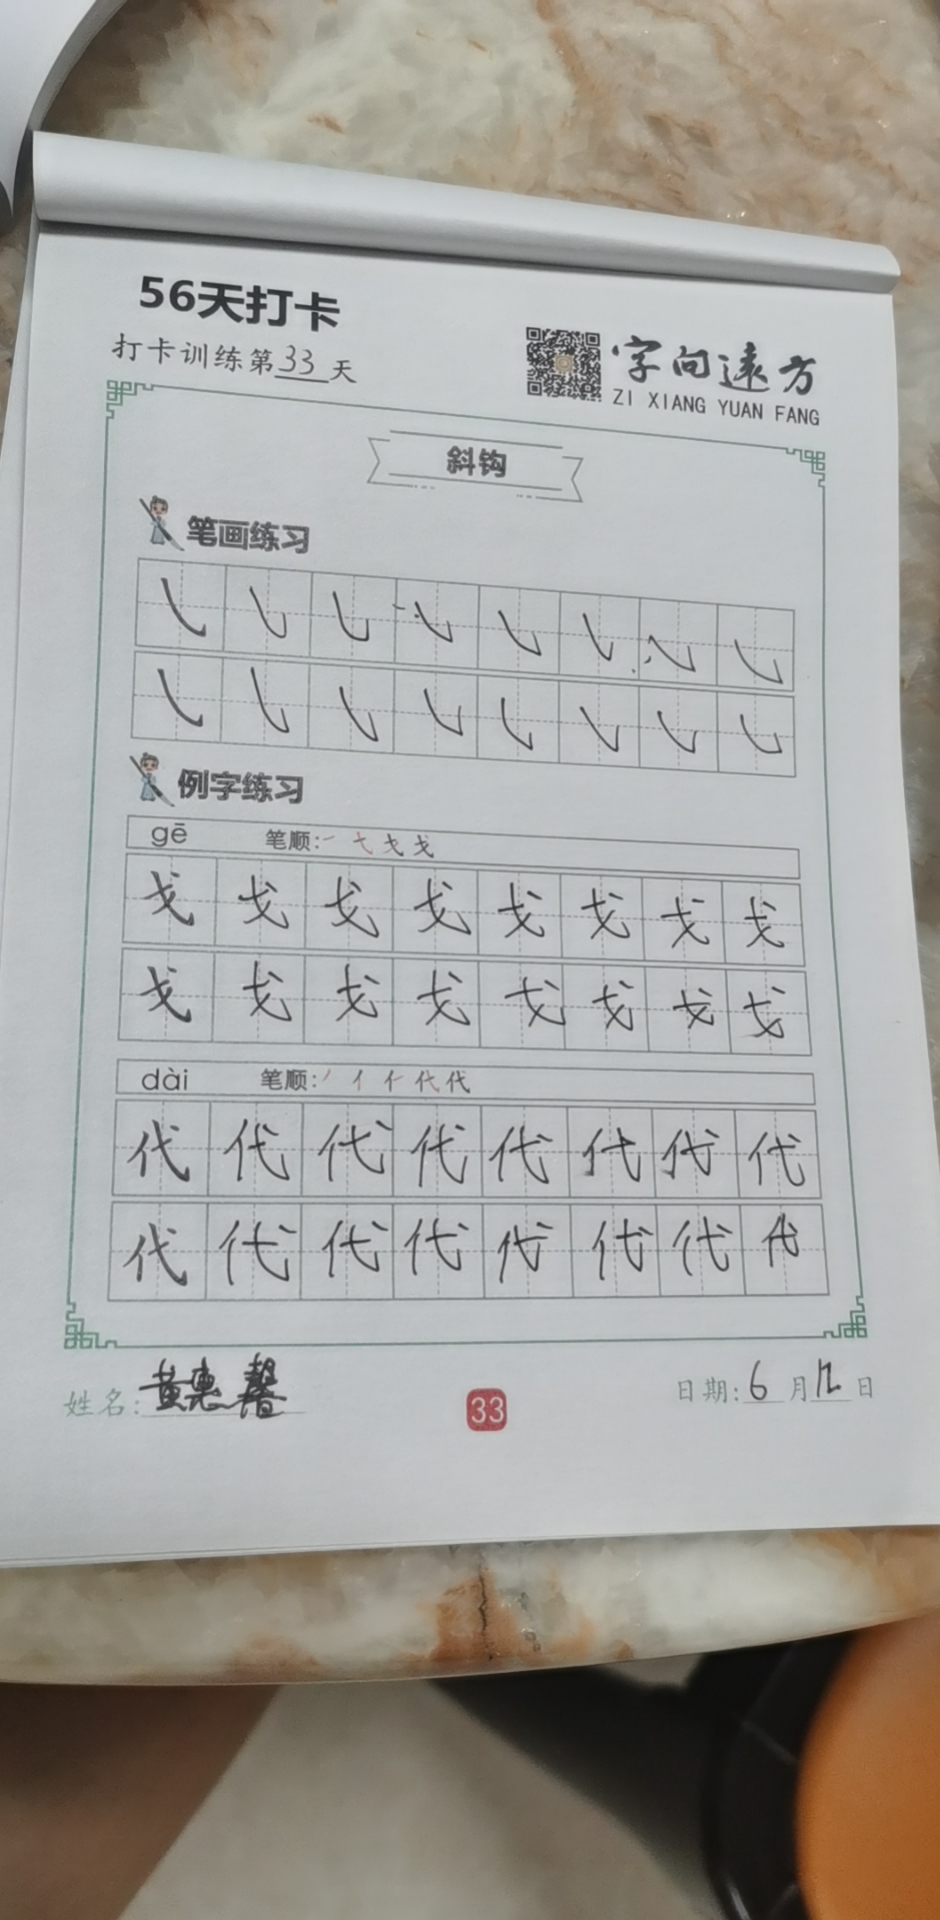 56天打卡
打卡训练第33天
字向远方
ZI XIANG YUAN FANG
斜钩
笔画练习
例字练习
gē 笔顺:
戈戈戈戈戈戈戈戈
戈戈戈戈戈戈戈戈
dài 笔顺:
代代代代代代代代
代代代代代代代代
姓名:黄惠馨
33
日期:6月12日